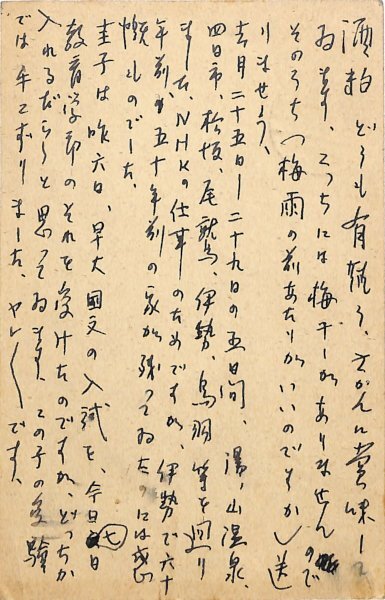 酒粕どうも有難う、さかんに賞味して
ゐます、こっちには梅干がありませんので
そのうち(梅雨の前あたりがいいのですが)送
りませう、
去月二十五日ー二十九日の五日間、湯ノ山温泉、
四日市、松坂、尾鷲、伊勢、鳥羽等を廻り
ました、NHKの仕事のためですが、伊勢で六十
年前か五十年前の家が残ってゐたのには感
慨ものでした。
圭子は昨六日、早大國文の入試を、今日七日
教育学部のそれを受けたのですが、どっちか
入れるだらうと思ってゐます、この子の受験
では手こずりました、ヤレヤレです、